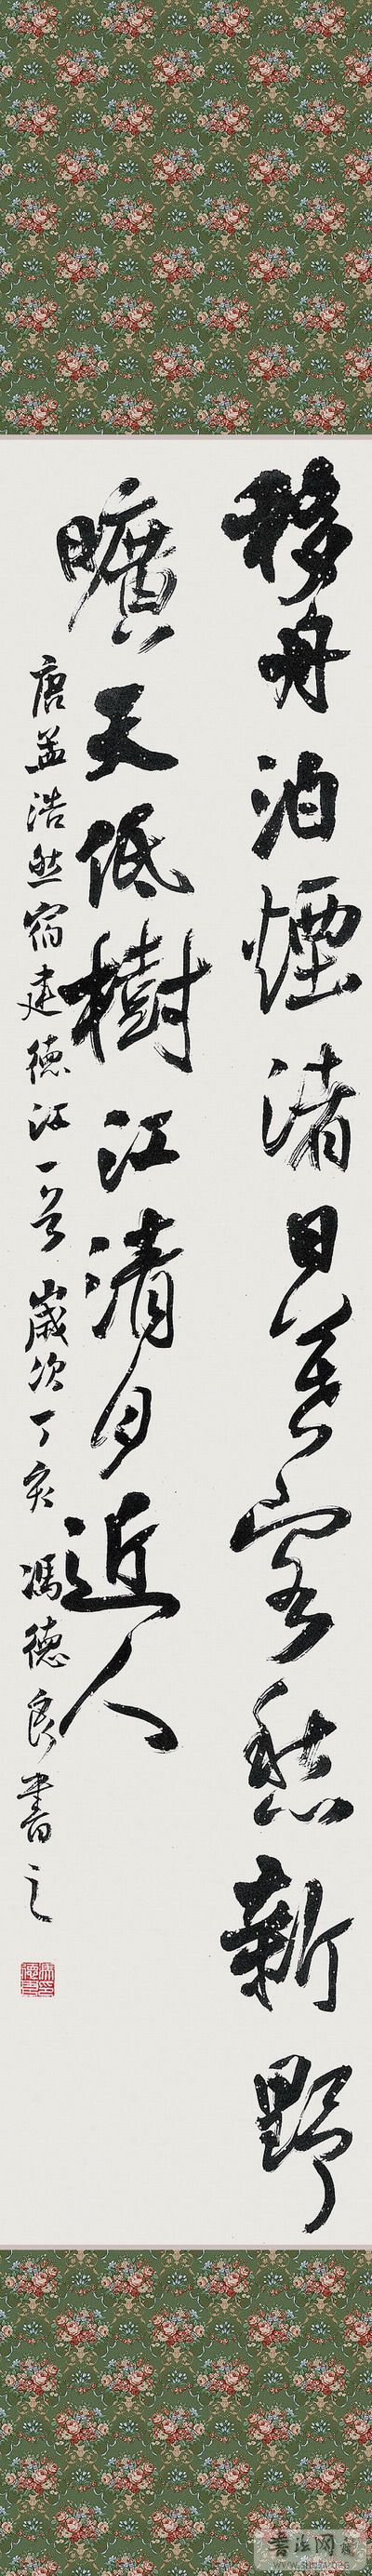 移舟泊煙渚日暮客愁新野
曠天低樹江清月近人
唐孟浩然宿建德江一首歲次丁亥馮德良書之
書法网